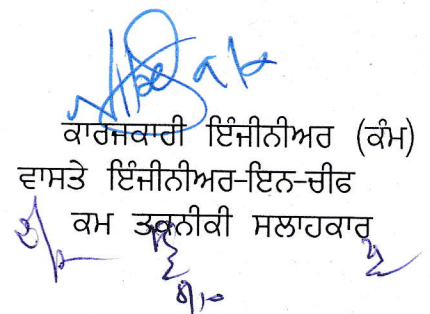 ਕਾਰਜਕਾਰੀ ਇੰਜੀਨੀਅਰ (ਕੰਮ)
ਵਾਸਤੇ ਇੰਜੀਨੀਅਰ-ਇਨ-ਚੀਫ
ਕਮ ਤਕਨੀਕੀ ਸਲਾਹਕਾਰ
8/10